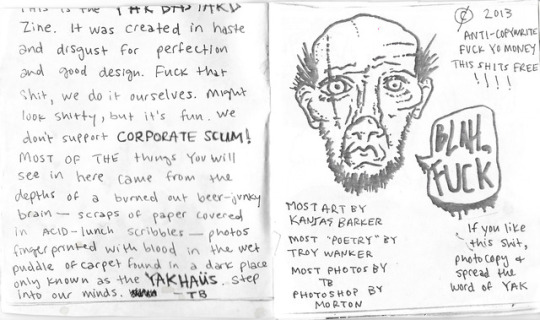 This is the YAK BASTARD
Zine. It was created in haste
and disgust for perfection
and good design. Fuck that
shit, we do it ourselves. Might
look shitty, but it's fun. we
don't support CORPORATE SCUM!
MOST OF THE things you will
see in here came from the
depths of a burned out beer-junky
brain — scraps of paper covered
in ACID-lunch scribbles — photos
fingerprinted with blood in the wet
puddle of carpet found in a dark place
only known as the YAKHAÜS. step
into our minds. — TB
2013
ANTI-COPYWRITE
FUCK YO MONEY
THIS SHITS FREE
!!!!
BLAH.
FUCK
MOST ART BY
KANSAS BARKER
MOST "POETRY" BY
TROY WANKER
MOST PHOTOS BY
TB
PHOTOSHOP BY
MORTON
If you like
this shit,
photocopy &
spread the
word of YAK